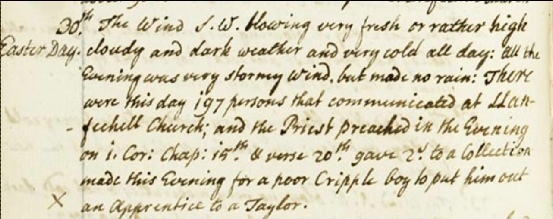 30th. The Wind S.W. blowing very fresh or rather high
Easter Day. cloudy and dark weather and very cold all day: all the
Evening was very stormy wind, but made no rain: There
were this day 197 persons that communicated at Llan-
fechell Church; and the Priest preached in the Evening
on 1. Cor: Chap: 15th & verse 20th. gave 2s to a Collection
made this Evening for a poor Cripple boy to put him out
X an Apprentice to a Taylor.